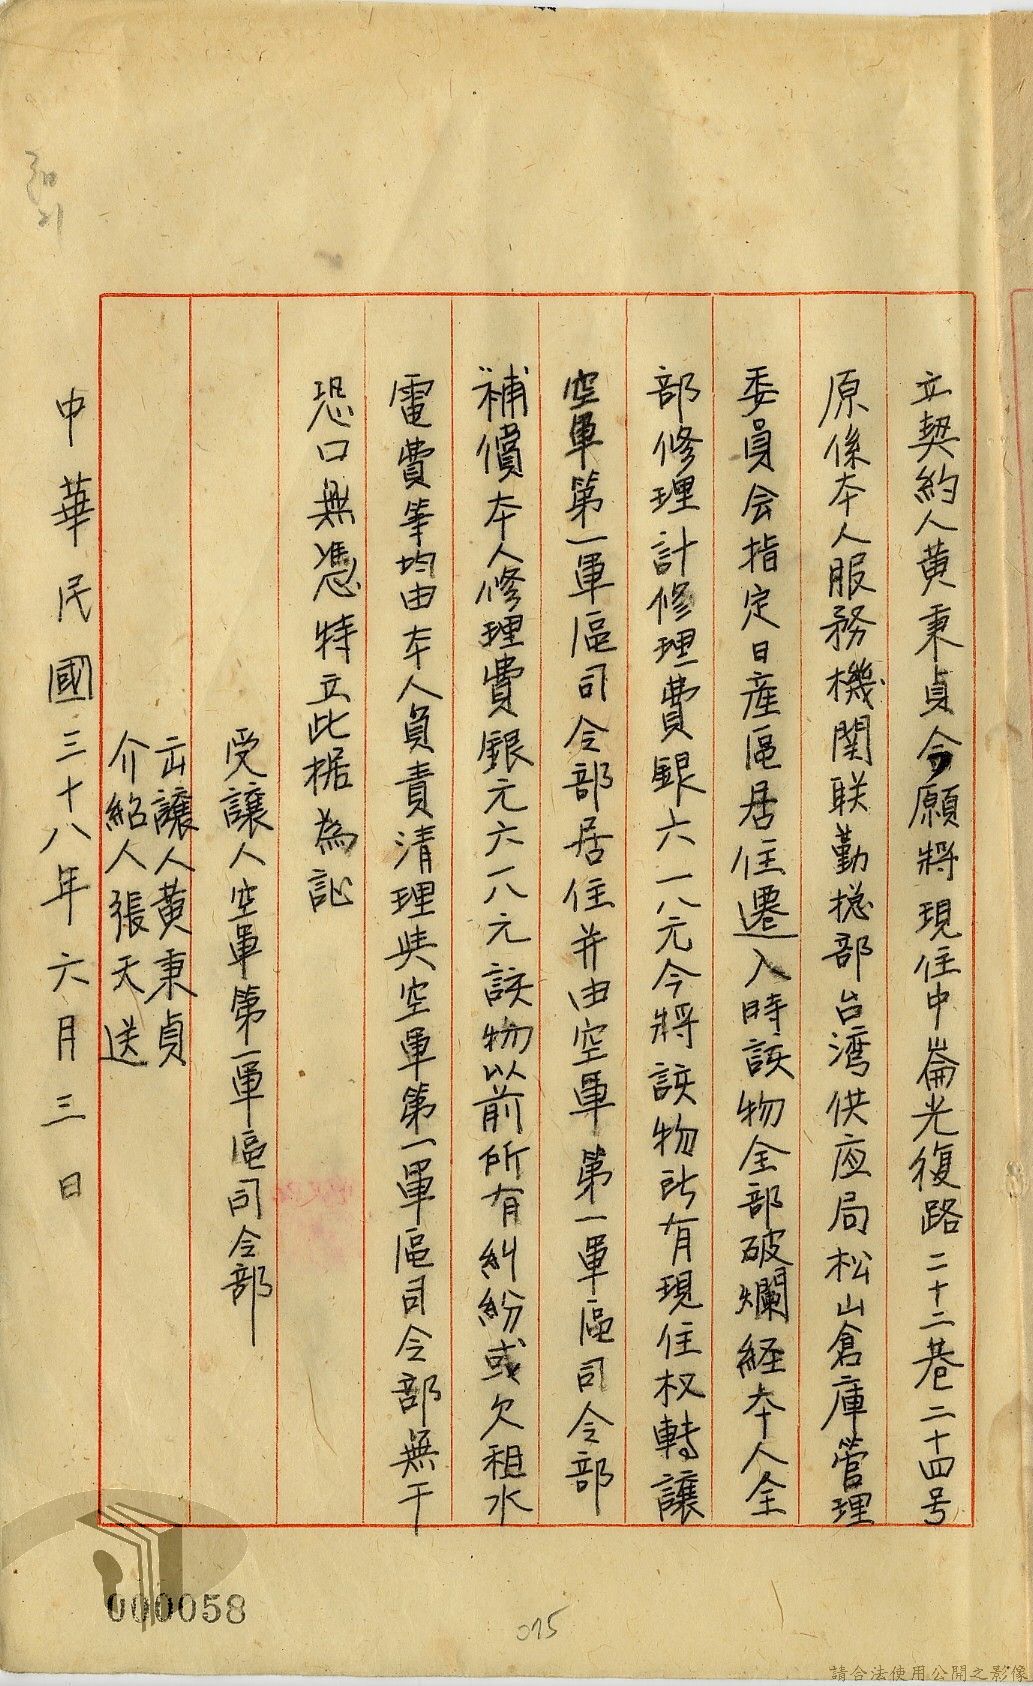 立契約人黄秉貞今願將現住中崙光復路二十二巷二十四号
原係本人服務機関联勤総部台湾供应局松山倉庫管理
委員会指定日産區居住遷入時該物全部破爛経本人全
部修理計修理費銀六一八元今將該物所有現住权轉讓
空軍第一軍區司令部居住并由空軍第一軍區司令部
補償本人修理費銀元六一八元該物以前所有糾紛或欠租水
電費等均由本人負責清理與空軍第一軍區司令部無干
恐口無憑特立此据為証
受讓人空軍第一軍區司令部
出讓人黄秉貞
介紹人張天送
中華民國三十八年六月三日
000058
015
請合法使用公開之影像